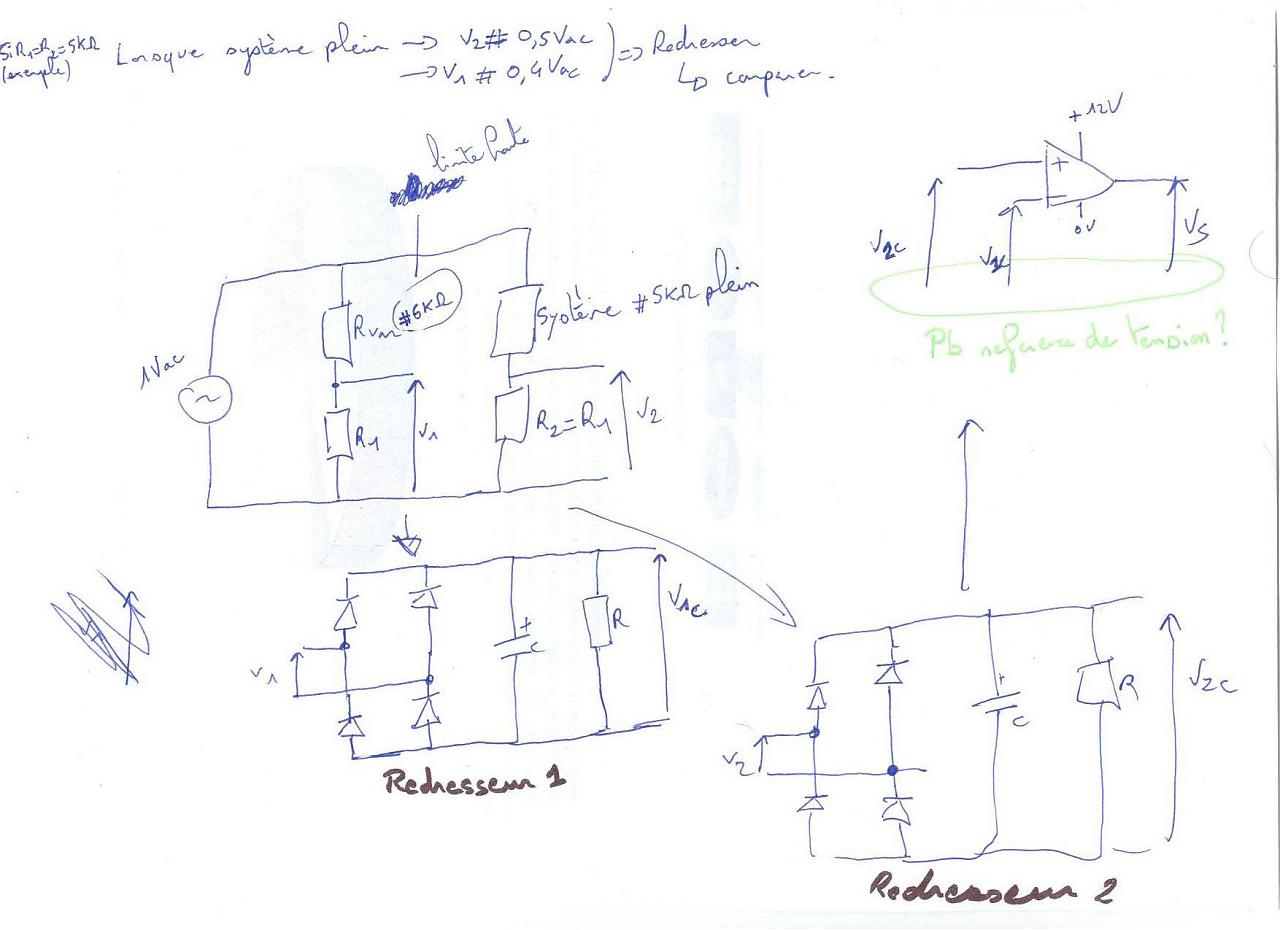 Si R1=R2=5KΩ
(exemple)
Lorsque système plein → V2 # 0,5Vac
→ V1 # 0,4Vac
⇒ Redresser
↳ comparer.
limite haute
+12V
+
−
0V
V2c
V1c
Vs
Pb reference de tension?
1Vac
~
Rvar
#6KΩ
Système #5KΩ plein
R1
V1
R2=R1
V2
V1
+
C
R
V1c
Redresseur 1
V2
+
C
R
V2c
Redresseur 2